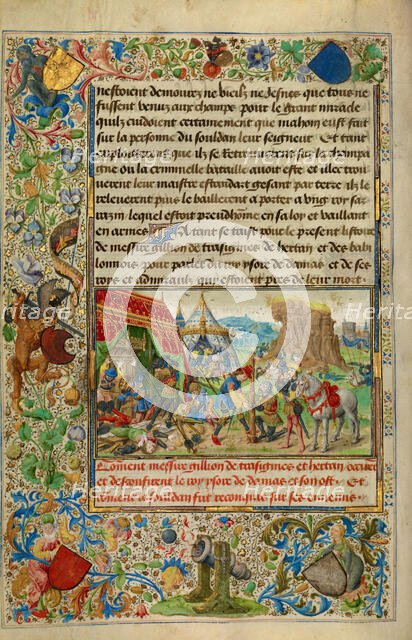 nestoient demourez ne vieilz ne Jesnes que tous ne
fussent venuz aux champz pour le grant miracle
quilz cuidoient certainement que mahon eust fait
sur la personne du souldan leur seigneur. Et tant
exploitierent que ilz se retrouverent sur la champaigne
ou la criminelle bataille auoit este et illec trou
verent leur maistre estandart gesant par terre ilz le
releuerent puis le baillerent a porter a vng roy sar
razin lequel estoit preudhome en sa loy et vaillant
en armes A tant se taist pour le present listoire
de messire gillion de trasignies de hertan et des bab
lonnois pour parler du roy ysore de damas et de ses
roys et admiraulx qui estoient pres de leur mort.
Coment messire gillion de trasignies et hertan
et desconfirent le roy ysore de damas et son ost. Et
coment le souldan fut
Heritage
Images
Heritage
Images